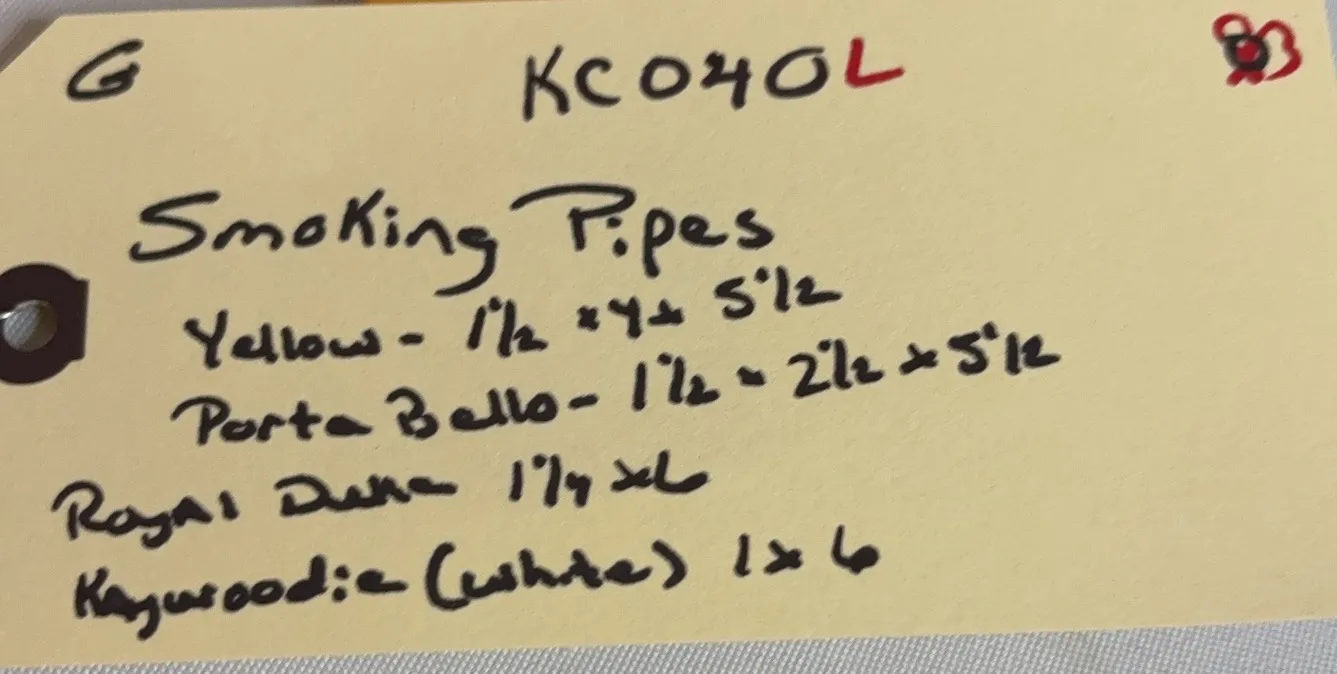 G KC040L
Smoking Pipes
Yellow - 1 1/2 x 4 x 5 1/2
Porta Bello - 1 1/2 x 2 1/2 x 5 1/2
Royal Duke 1 1/4 x 6
Kaywoodie (white) 1 x 6